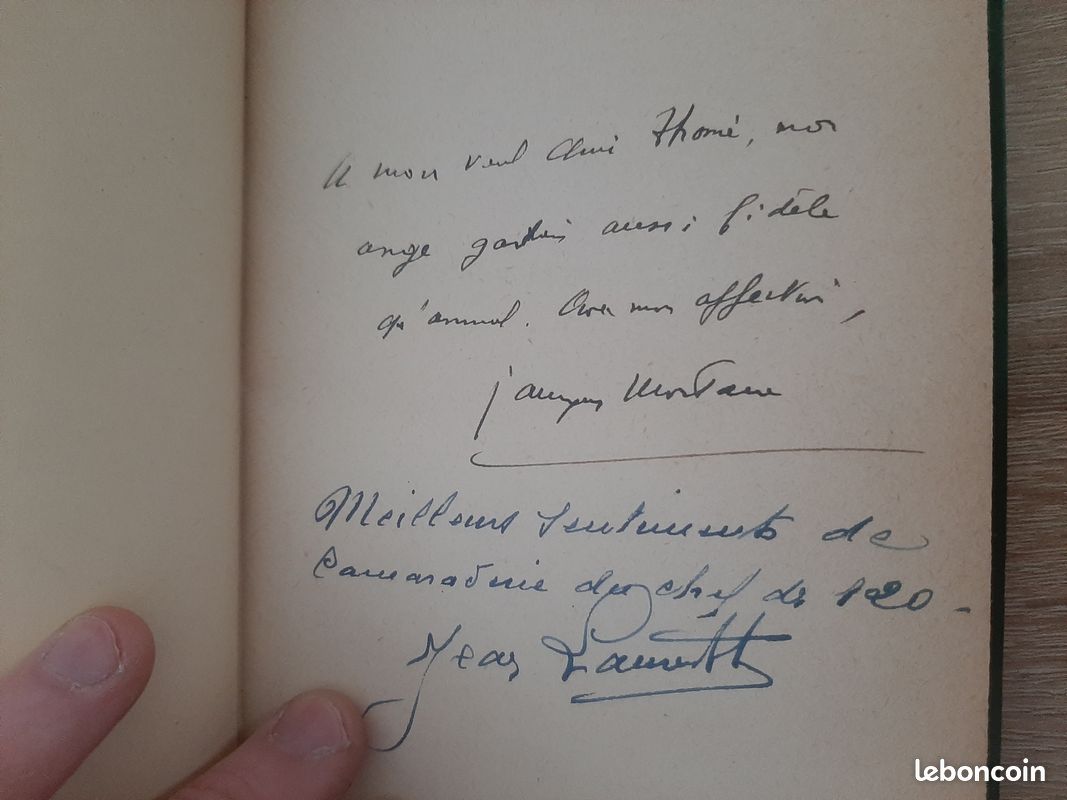 A mon vieil ami Thomé, mon
ange gardien aussi fidèle
qu'amical. Avec mon affection,
Jacques Mortane
Meilleurs sentiments de
camaraderie du chef de 120 -
Jean
leboncoin